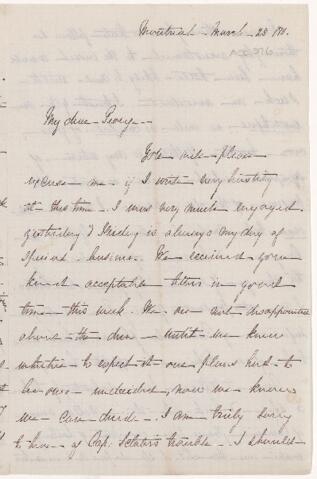 Montreal - March - 28
My dear George -
You will - please
excuse me if I write very hastily
at this time - I was very much engaged
yesterday & Friday is always my day of
special business. We received your
kind - acceptable letter in good
time - this week. We are not disappointed
about - the - until - we knew
what to expect - our plans had - to
be undecided, now we know
we can decide. I am truly sorry
to hear - of Cap. trouble - I should